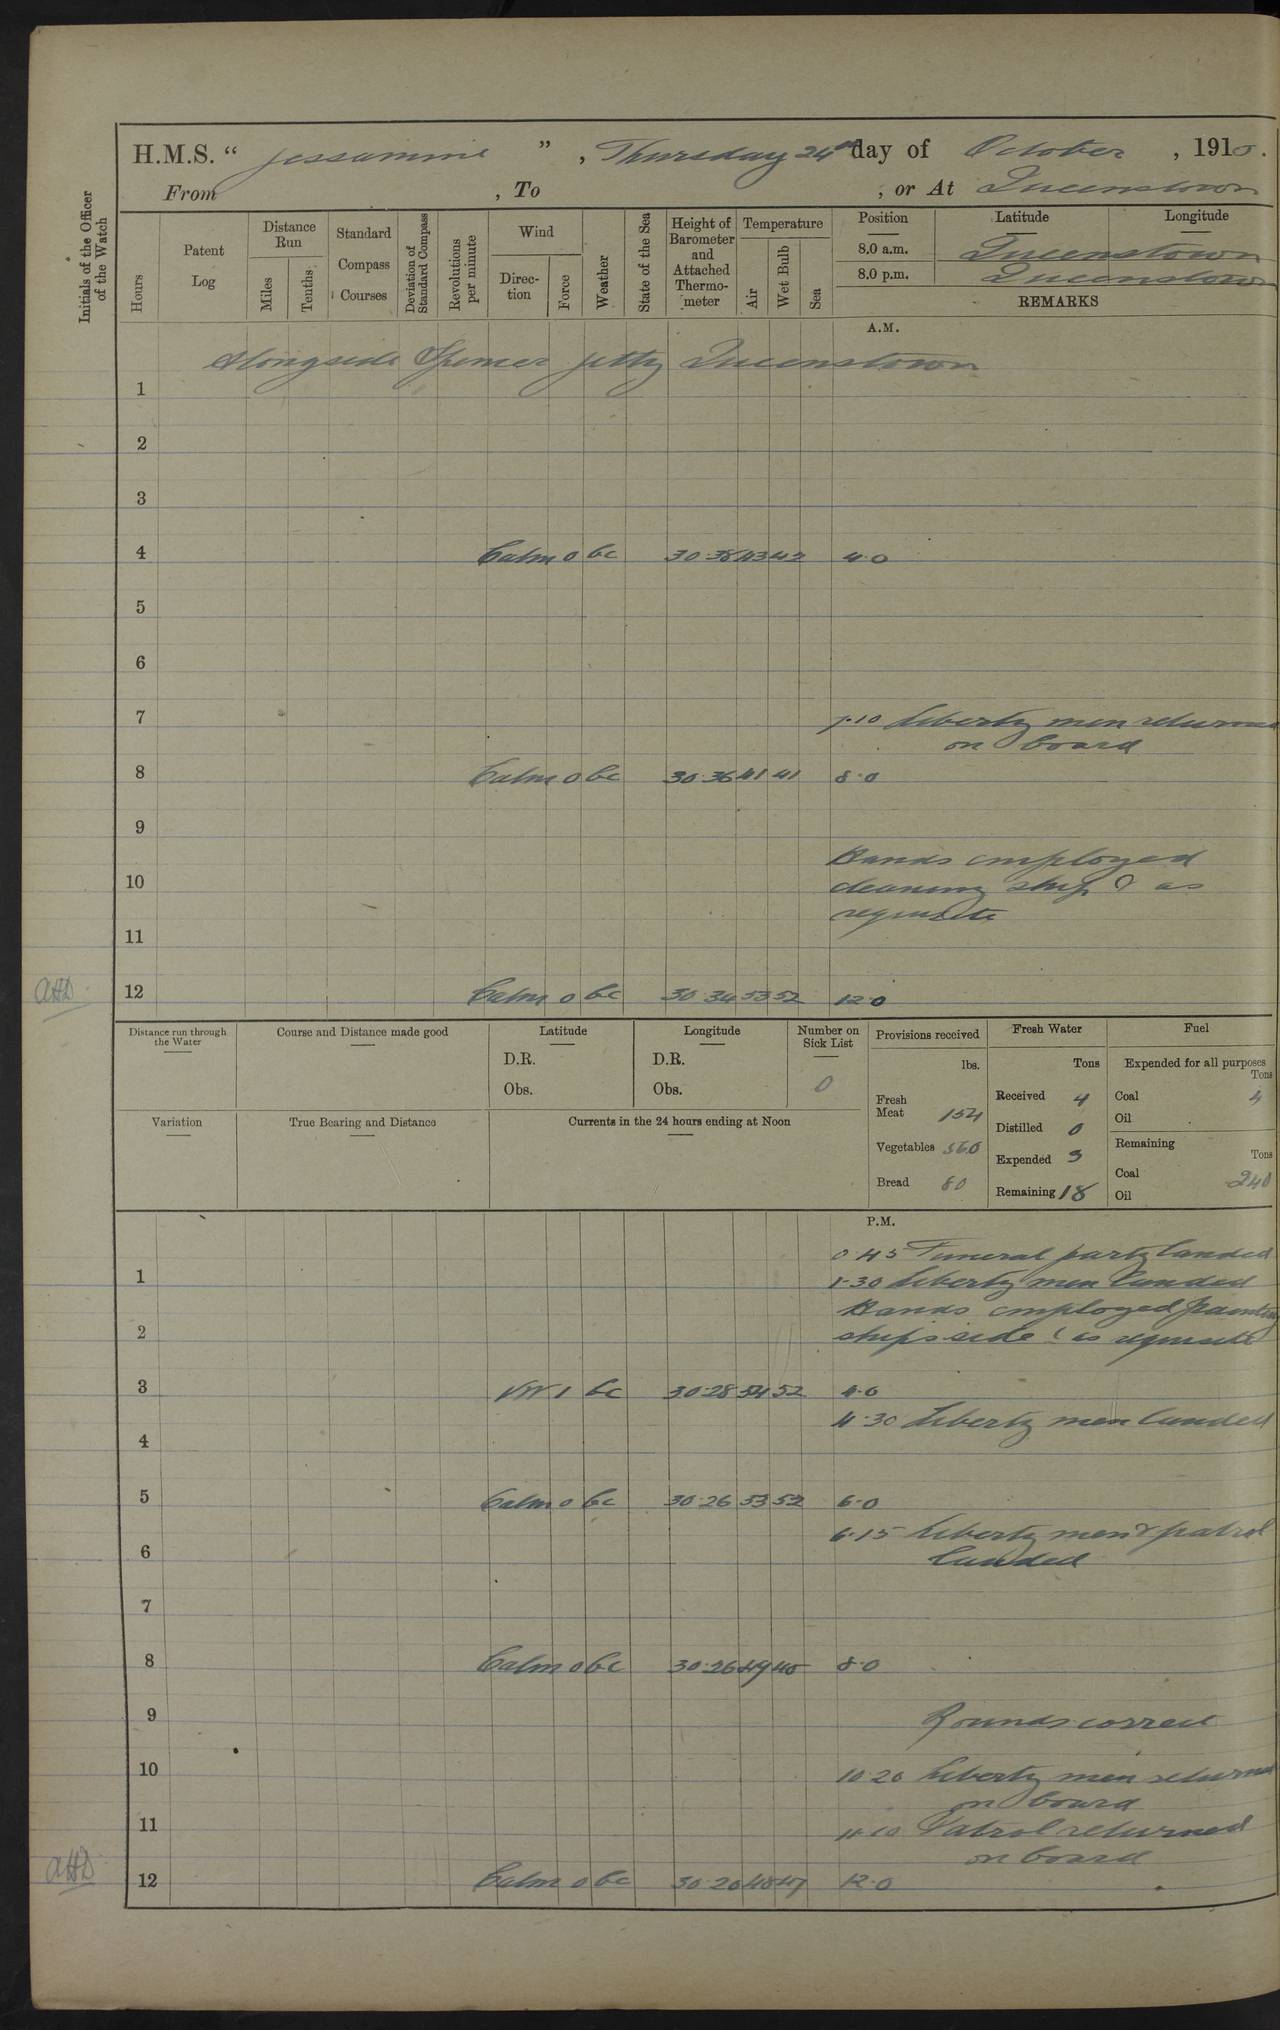 H.M.S. “ Jessamine ”, Thursday 24th day of October, 1918.
From , To , or At Queenstown
Initials of the Officer of the Watch
Hours
Patent Log
Distance Run
Miles
Tenths
Standard Compass Courses
Deviation of Standard Compass
Revolutions per minute
Wind
Direc-tion
Force
Weather
State of the Sea
Height of Barometer and Attached Thermo-meter
Temperature
Air
Wet Bulb
Sea
Position Latitude Longitude
8.0 a.m. Queenstown
8.0 p.m. Queenstown
REMARKS
A.M.
Alongside Spencer jetty Queenstown
1
2
3
4 Calm 0 bc 30.38 43 42 4.0
5
6
7 7.10 Liberty men returned
on board
8 Calm 0 bc 30.36 41 41 8.0
9
Hands employed
10 cleaning ship & as
requisite
11
AHD 12 Calm 0 bc 30.34 53 52 12.0
Distance run through the Water
Course and Distance made good
Latitude
D.R.
Obs.
Longitude
D.R.
Obs.
Number on Sick List
0
Provisions received
lbs.
Fresh Meat 154
Vegetables 560
Bread 80
Fresh Water
Tons
Received 4
Distilled 0
Expended 3
Remaining 18
Fuel
Expended for all purposes
Tons
Coal 4
Oil
Remaining
Tons
Coal 240
Oil
Variation
True Bearing and Distance
Currents in the 24 hours ending at Noon
P.M.
0.45 Funeral party landed
1 1.30 Liberty men landed
Hands employed painting
2 ships side & as requisite
3 VW 1 bc 30.28 54 52 4.0
4.30 Liberty men landed
4
5 Calm 0 bc 30.26 53 52 6.0
6.15 Liberty men & patrol
6 landed
7
8 Calm 0 bc 30.26 49 48 8.0
9 Rounds correct
10 10.20 Liberty men returned
on board
11 Patrol returned
on board
AHD 12 Calm 0 bc 30.20 48 47 12.0